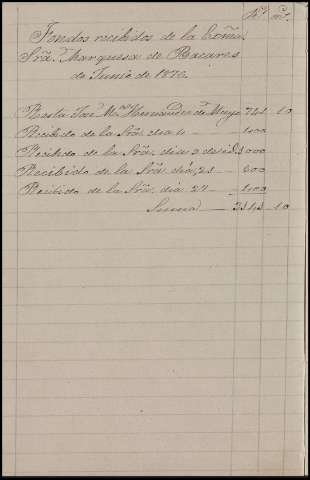 Rs. ms.
Fondos recibidos de la Excma.
Sra. Marquesa de Bacares
de Junio de 1876.
Resta José Ma. Hernandez de Mayo 744 10
Recibido de la Sra. dia 4 — 400
Recibido de la Sra. dia 9 de id. 1000
Recibido de la Sra. dia 23 — 600
Recibido de la Sra. dia 27 — 400
Suma — 3144 10